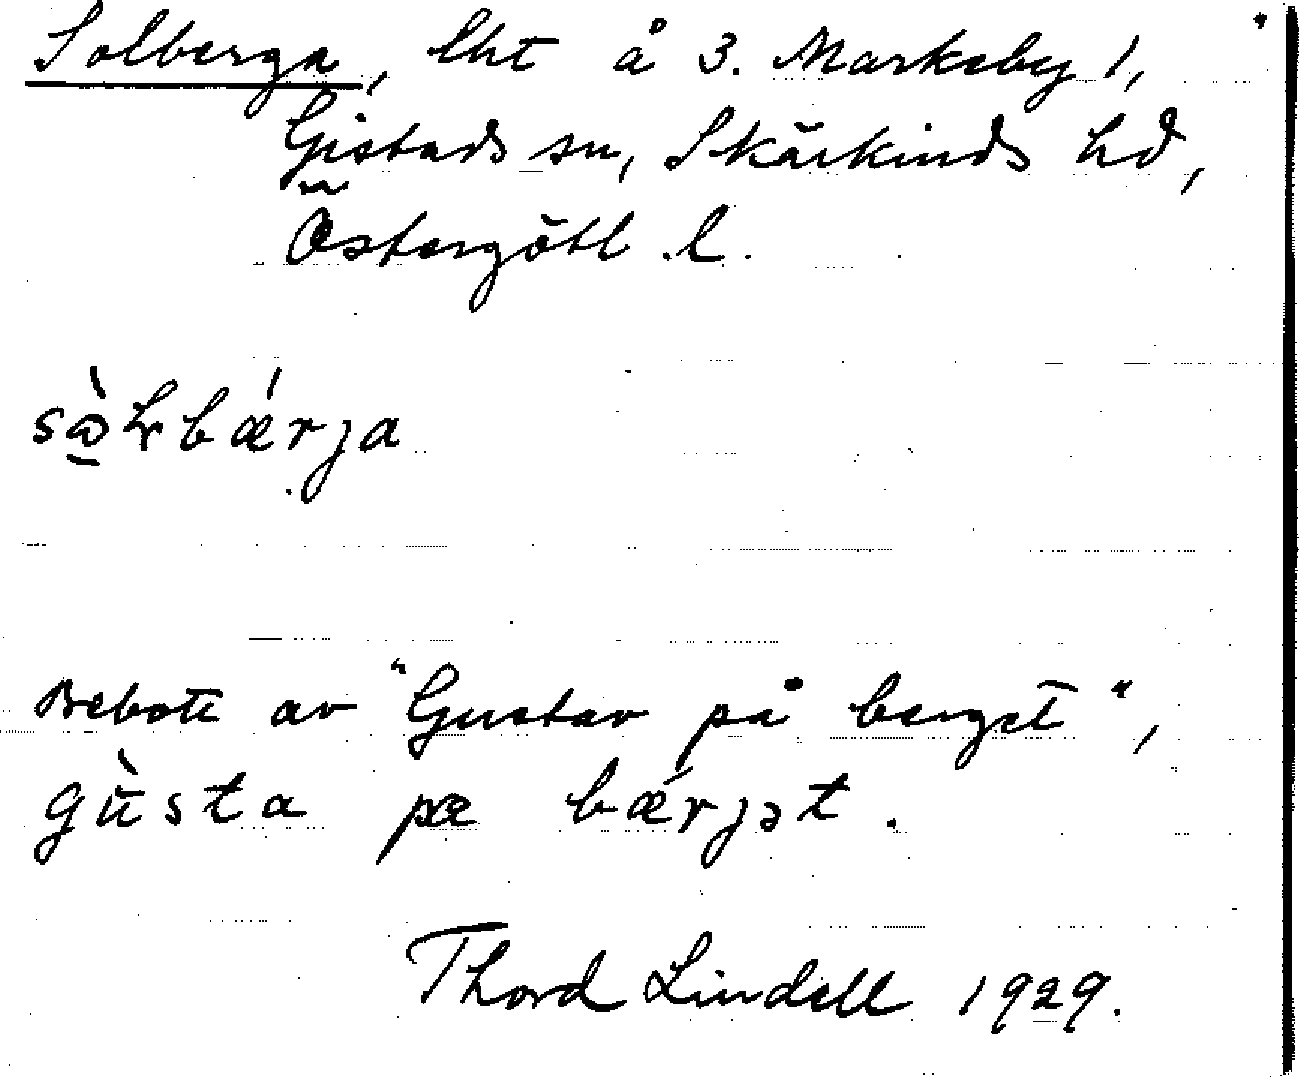 Solberga, lht å 3. Markeby 1,
Gistads sn, Skärkinds hd,
Östergötl. l.
bǽrja
Bebott av "Gustav på berget",
gùsta pæ bǽrjət.
Thord Lindell 1929.